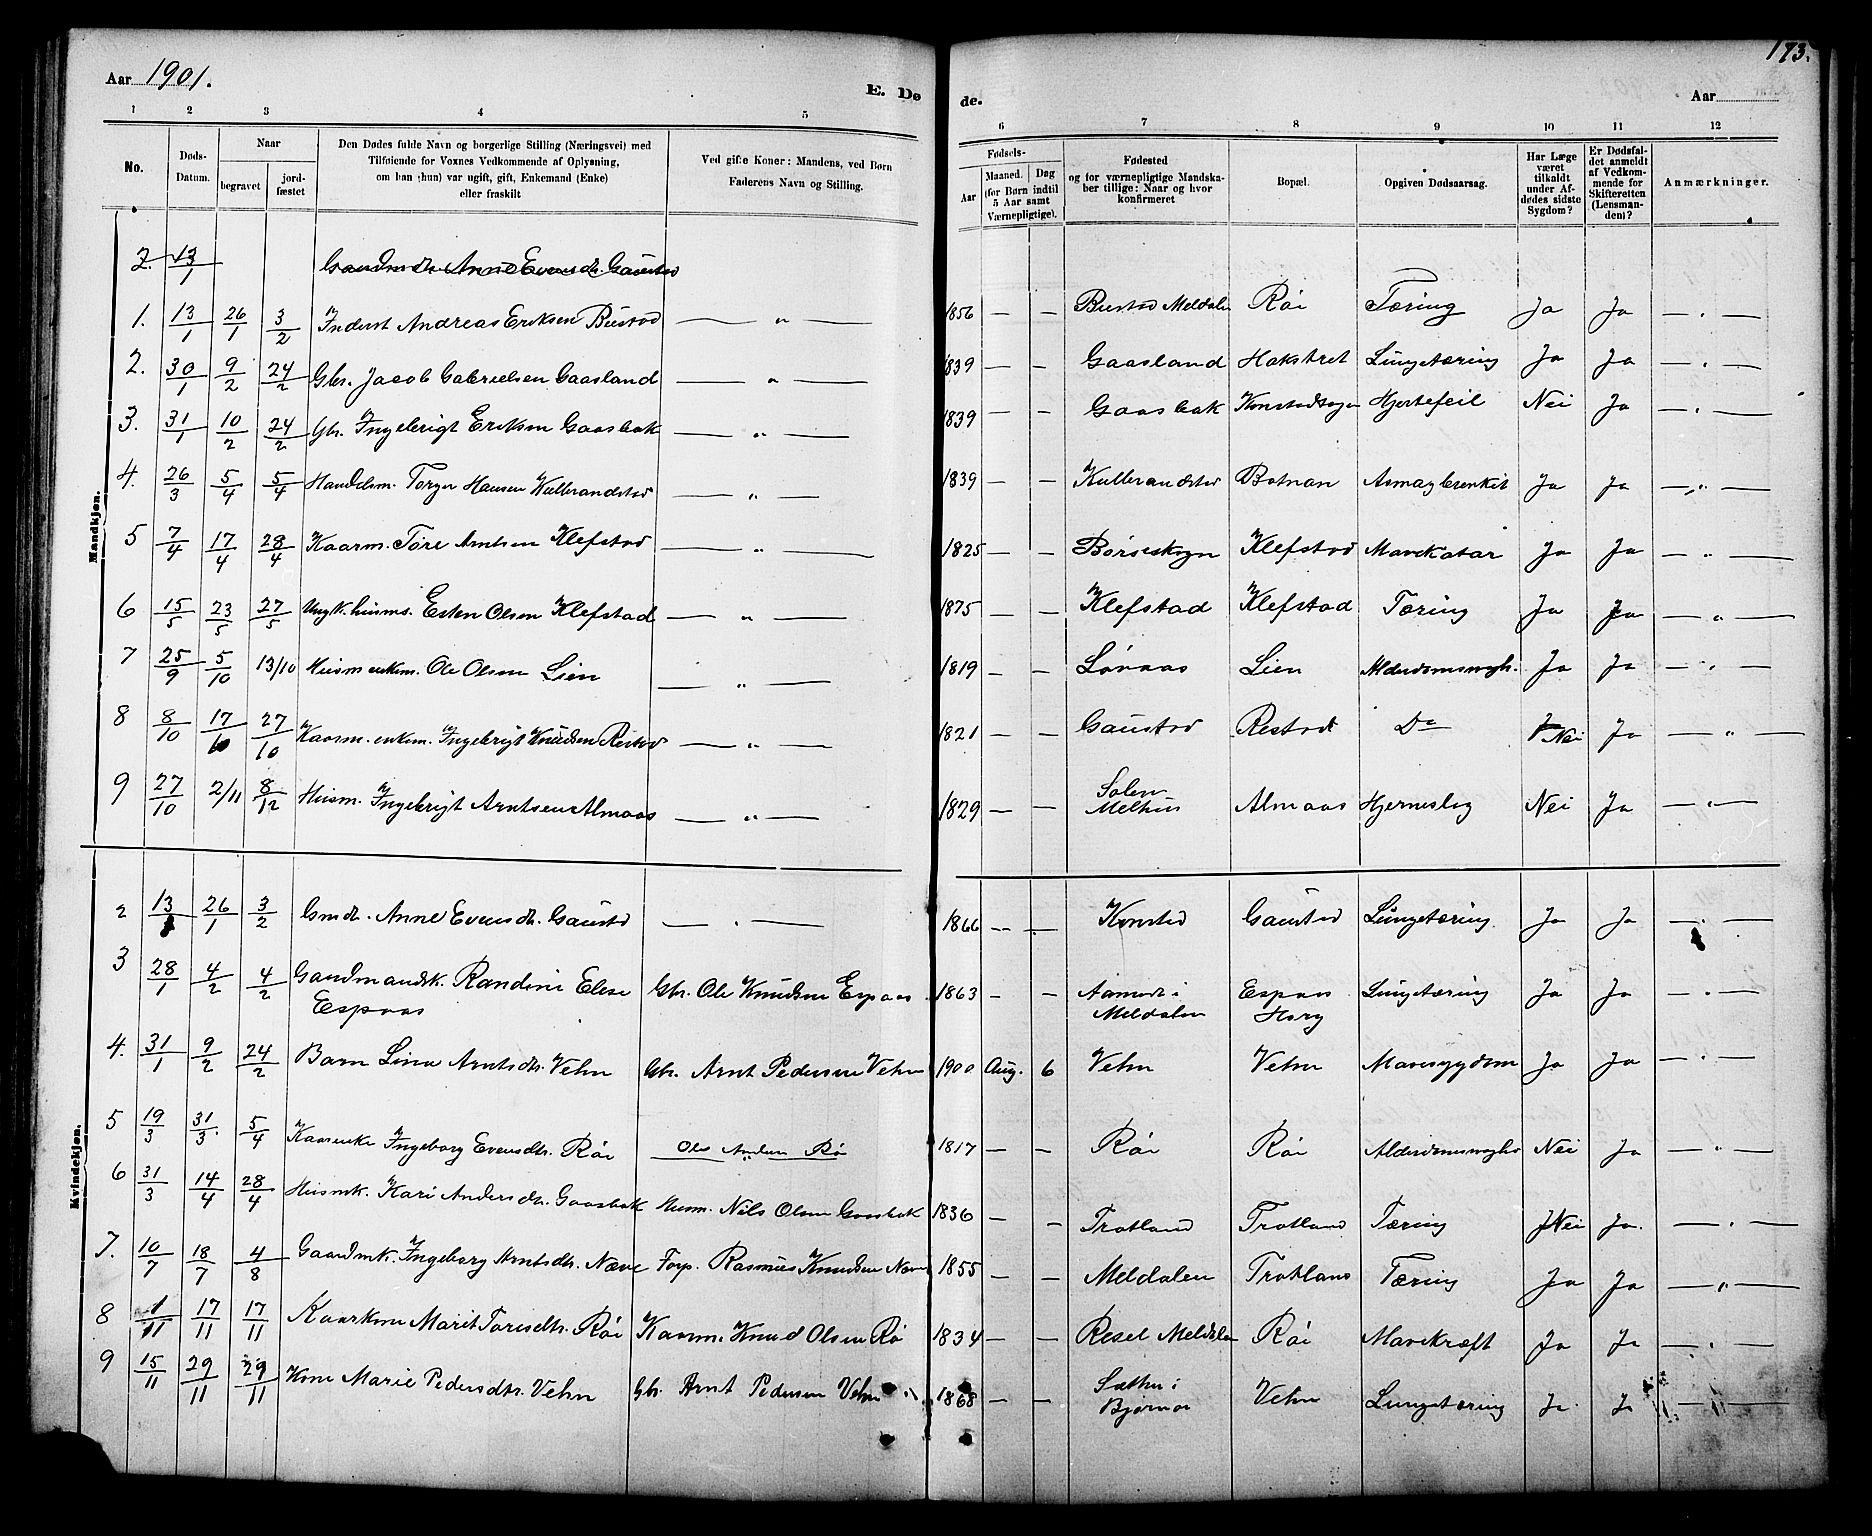 Aar 1901.
E. Dø
de.
Aar
173.
1 2 3 4 5 6 7 8 9 10 11 12
No.
Døds-
Datum.
Naar
begravet
jord-
fæstet
Den Dødes fulde Navn og borgerlige Stilling (Næringsvei) med
Tilføiende for Voxnes Vedkommende af Oplysning,
om han (hun) var ugift, gift, Enkemand (Enke)
eller fraskilt
Ved gifte Koner: Mandens, ved Børn
Faderens Navn og Stilling.
Fødsels-
Aar
Maaned. Dag
(for Børn indtil
5 Aar samt
Værnepligtige).
Fødested
og for værnepligtige Mandska-
ber tillige: Naar og hvor
konfirmeret
Bopæl.
Opgiven Dødsaarsag.
Har Læge
været
tilkaldt
under Af-
dødes sidste
Sygdom?
Er Dødsfal-
det anmeldt
af Vedkom-
mende for
Skifteretten
(Lensman-
den)?
Anmærkninger.
Mandkjøn.
2. 13/1 Gaardmdtr. Anne Evensdtr. Gaustad
1. 13/1 26/1 3/2 Inderst Andreas Eriksen Bustad — " — 1856 — — Bustad Meldalen Røi Tæring Ja Ja — " —
2. 30/1 9/2 24/2 Gbr. Jacob Gabrielsen Gaasland — " — 1839 — — Gaasland Hakstret Lungetæring Ja Ja — " —
3. 31/1 10/2 24/2 Gbr. Ingebrigt Eriksen Gaasbak — " — 1839 — — Gaasbak Hjertefeil Nei Ja — " —
4. 26/3 5/4 5/4 Handelsm. Torger Hansen Kulbrandstad — " — 1839 — — Kulbrandstad Botnan Ja Ja — " —
5 7/4 17/4 28/4 Kaarm. Tøre Arntsen Klefstad — " — 1825 — — Børseskogn Klefstad Mavekatar Ja Ja — " —
6 15/5 23/5 27/5 Ungk. husms. Esten Olsen Klefstad — " — 1875 — — Klefstad Klefstad Tæring Ja Ja — " —
7 25/9 5/10 13/10 Husm enkem. Ole Olsen Lien — " — 1819 — — Løvaas Lien Alderdomssvagh. Ja Ja — " —
8 8/10 17/10 27/10 Kaarm. enkem. Ingebrigt Knudsen Restad — " — 1821 — — Gaustad Restad Do Nei Ja — " —
9 27/10 2/11 8/12 Husm. Ingebrigt Arntsen Almaas — " — 1829 — — Solem
Melhus Almaas Hjerneslag Nei Ja — " —
Kvindekjøn.
2 13/1 26/1 3/2 Gmdtr. Anne Evensdtr. Gaustad — " — 1866 — — Konstad Gaustad Lungetæring Ja Ja — " —
3 28/1 4/2 4/2 Gaardmandsk. Randine Elise
Espaas Gbr. Ole Knudsen Espaas 1863 — — Aamodt i
Meldalen Espaas
Horg Lungetæring Ja Ja — " —
4. 31/1 9/2 24/2 Barn Lina Arntsdtr. Vehn Gbr. Arnt Pedersen Vehn 1900 Aug. 6 Vehn Vehn Mavesygdom Ja Ja — " —
5 19/3 31/3 5/4 Kaarenke Ingeborg Evensdtr. Røi Ole Andersen Rø 1817 — — Røi Røi Alderdomssvaghed Nei Ja — " —
6 31/3 14/4 28/4 Husmk. Kari Andersdtr. Gaasbak Husm. Nils Olsen Gaasbak 1836 — — Trotland Trotland Tæring Nei Ja. — " —
7. 10/7 18/7 4/8 Gaardmk. Ingeborg Arntsdtr. Næve Forp. Rasmus Knudsen Næve 1855 — — Meldalen Trotland Tæring Ja Ja — " —
8 1/11 17/11 17/11 Kaarkone Marit Toresdtr. Røi Kaarm. Knud Olsen Rø 1834 — — Resel Meldalen Røi Mavekræft Ja Ja — " —
9 15/11 29/11 29/11 Kone Marie Pedersdtr. Vehn Gbr. Arnt Pedersen Vehn 1868 — — Sæther i
Bjørnør Vehn Lungetæring Ja Ja — " —